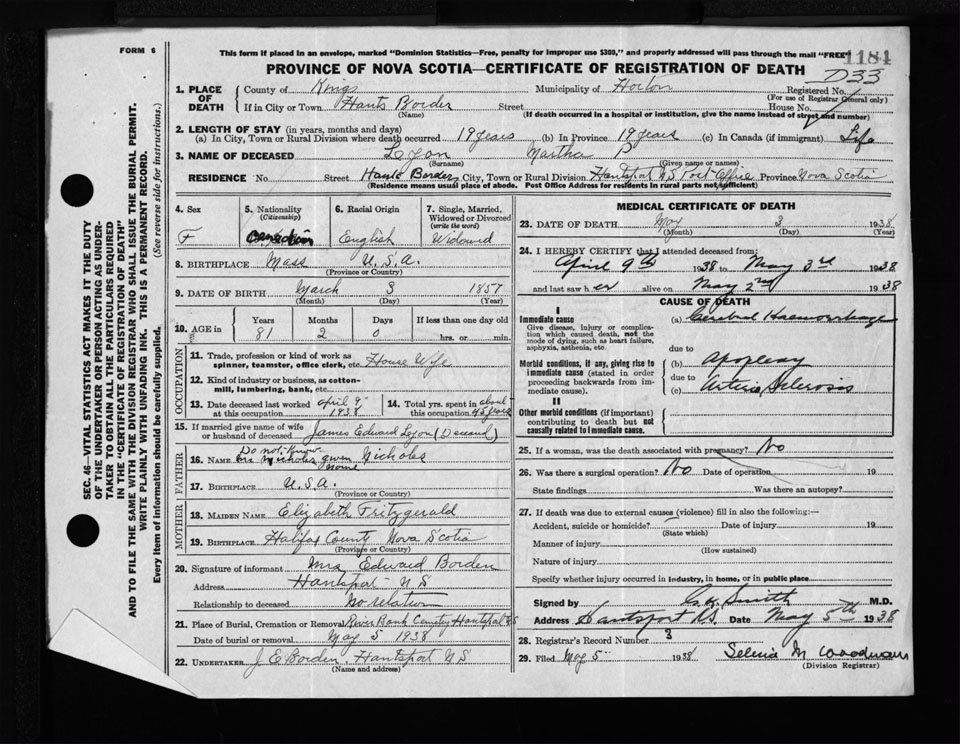 FORM 6
This form if placed in an envelope, marked "Dominion Statistics—Free, penalty for improper use $300," and properly addressed will pass through the mail "FREE"
1184
PROVINCE OF NOVA SCOTIA—CERTIFICATE OF REGISTRATION OF DEATH
D33
1. PLACE OF DEATH
County of Kings Municipality of Horton Registered No.
(For use of Registrar General only)
If in City or Town Hants Border Street House No.
(Name) (If death occurred in a hospital or institution, give the name instead of street and number)
2. LENGTH OF STAY (in years, months and days)
(a) In City, Town or Rural Division where death occurred 19 years (b) In Province 19 years (c) In Canada (if immigrant) Life
3. NAME OF DECEASED Martha P
(Surname) (Given name or names)
RESIDENCE No Street Hants Border City, Town or Rural Division Hantsport NS Post Office Province Nova Scotia
(Residence means usual place of abode. Post Office Address for residents in rural parts not sufficient)
4. Sex
F
5. Nationality
(Citizenship)
Canadian
6. Racial Origin
English
7. Single, Married, Widowed or Divorced
(write the word)
Widowed
8. BIRTHPLACE Mass U.S.A.
(Province or Country)
9. DATE OF BIRTH March 3 1857
(Month) (Day) (Year)
10. AGE in
Years Months Days If less than one day old
81 2 0 hrs. or min.
OCCUPATION
11. Trade, profession or kind of work as spinner, teamster, office clerk, etc. House Wife
12. Kind of industry or business, as cotton-mill, lumbering, bank, etc.
13. Date deceased last worked at this occupation April 9, 1938
14. Total yrs. spent in this occupation about 45 years
15. If married give name of wife or husband of deceased James Edward (Deceased)
FATHER
16. Name Do not know given name Nicholes
17. BIRTHPLACE U.S.A.
(Province or Country)
MOTHER
18. MAIDEN NAME Elizabeth Fritzgerald
19. BIRTHPLACE Halifax County Nova Scotia
(Province or Country)
20. Signature of informant Mrs Edward Borden
Address Hantsport NS
Relationship to deceased No relation
21. Place of Burial, Cremation or Removal River Bank Cemetry Hantsport NS
Date of burial or removal May 5 1938
22. UNDERTAKER J E Borden, Hantsport NS
(Name and address)
MEDICAL CERTIFICATE OF DEATH
23. DATE OF DEATH May 3 1938
(Month) (Day) (Year)
24. I HEREBY CERTIFY that I attended deceased from:
April 9th 1938 to May 3rd 1938
and last saw her alive on May 2nd 1938
CAUSE OF DEATH
I
Immediate cause
Give disease, injury or complication which caused death, not the mode of dying, such as heart failure, asphyxia, asthenia, etc.
(a) Cerebral Haemorrhage
due to
Morbid conditions, if any, giving rise to immediate cause (stated in order proceeding backwards from immediate cause).
(b) Apoplexy
due to
(c) Arterio Sclerosis
II
Other morbid conditions (if important) contributing to death but not causally related to immediate cause.
25. If a woman, was the death associated with pregnancy? No
26. Was there a surgical operation? No Date of operation 19
State findings Was there an autopsy?
27. If death was due to external causes (violence) fill in also the following:—
Accident, suicide or homicide? Date of injury 19
(State which)
Manner of injury
(How sustained)
Nature of injury
Specify whether injury occurred in industry, in home, or in public place
Signed by Smith M.D.
Address Hantsport N.S. Date May 5th 1938
28. Registrar's Record Number 3
29. Filed May 5 1938 Selina M Woodman
(Division Registrar)
SEC. 46—VITAL STATISTICS ACT MAKES IT THE DUTY OF THE UNDERTAKER OR PERSON ACTING AS UNDERTAKER TO OBTAIN ALL THE PARTICULARS REQUIRED IN THE "CERTIFICATE OF REGISTRATION OF DEATH" AND TO FILE THE SAME WITH THE DIVISION REGISTRAR WHO SHALL ISSUE THE BURIAL PERMIT.
WRITE PLAINLY WITH UNFADING INK. THIS IS A PERMANENT RECORD.
Every item of information should be carefully supplied. (See reverse side for instructions.)